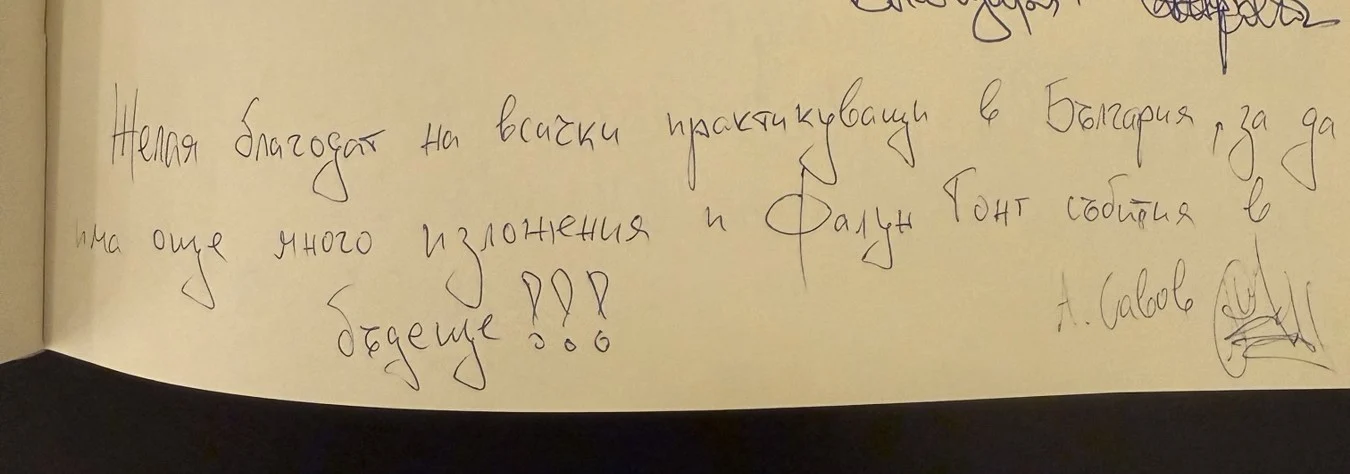 Желая благодат на всички практикуващи в България, за да
има още много изложения и Фалун Гонг събития в
бъдеще !!!
А. Савов